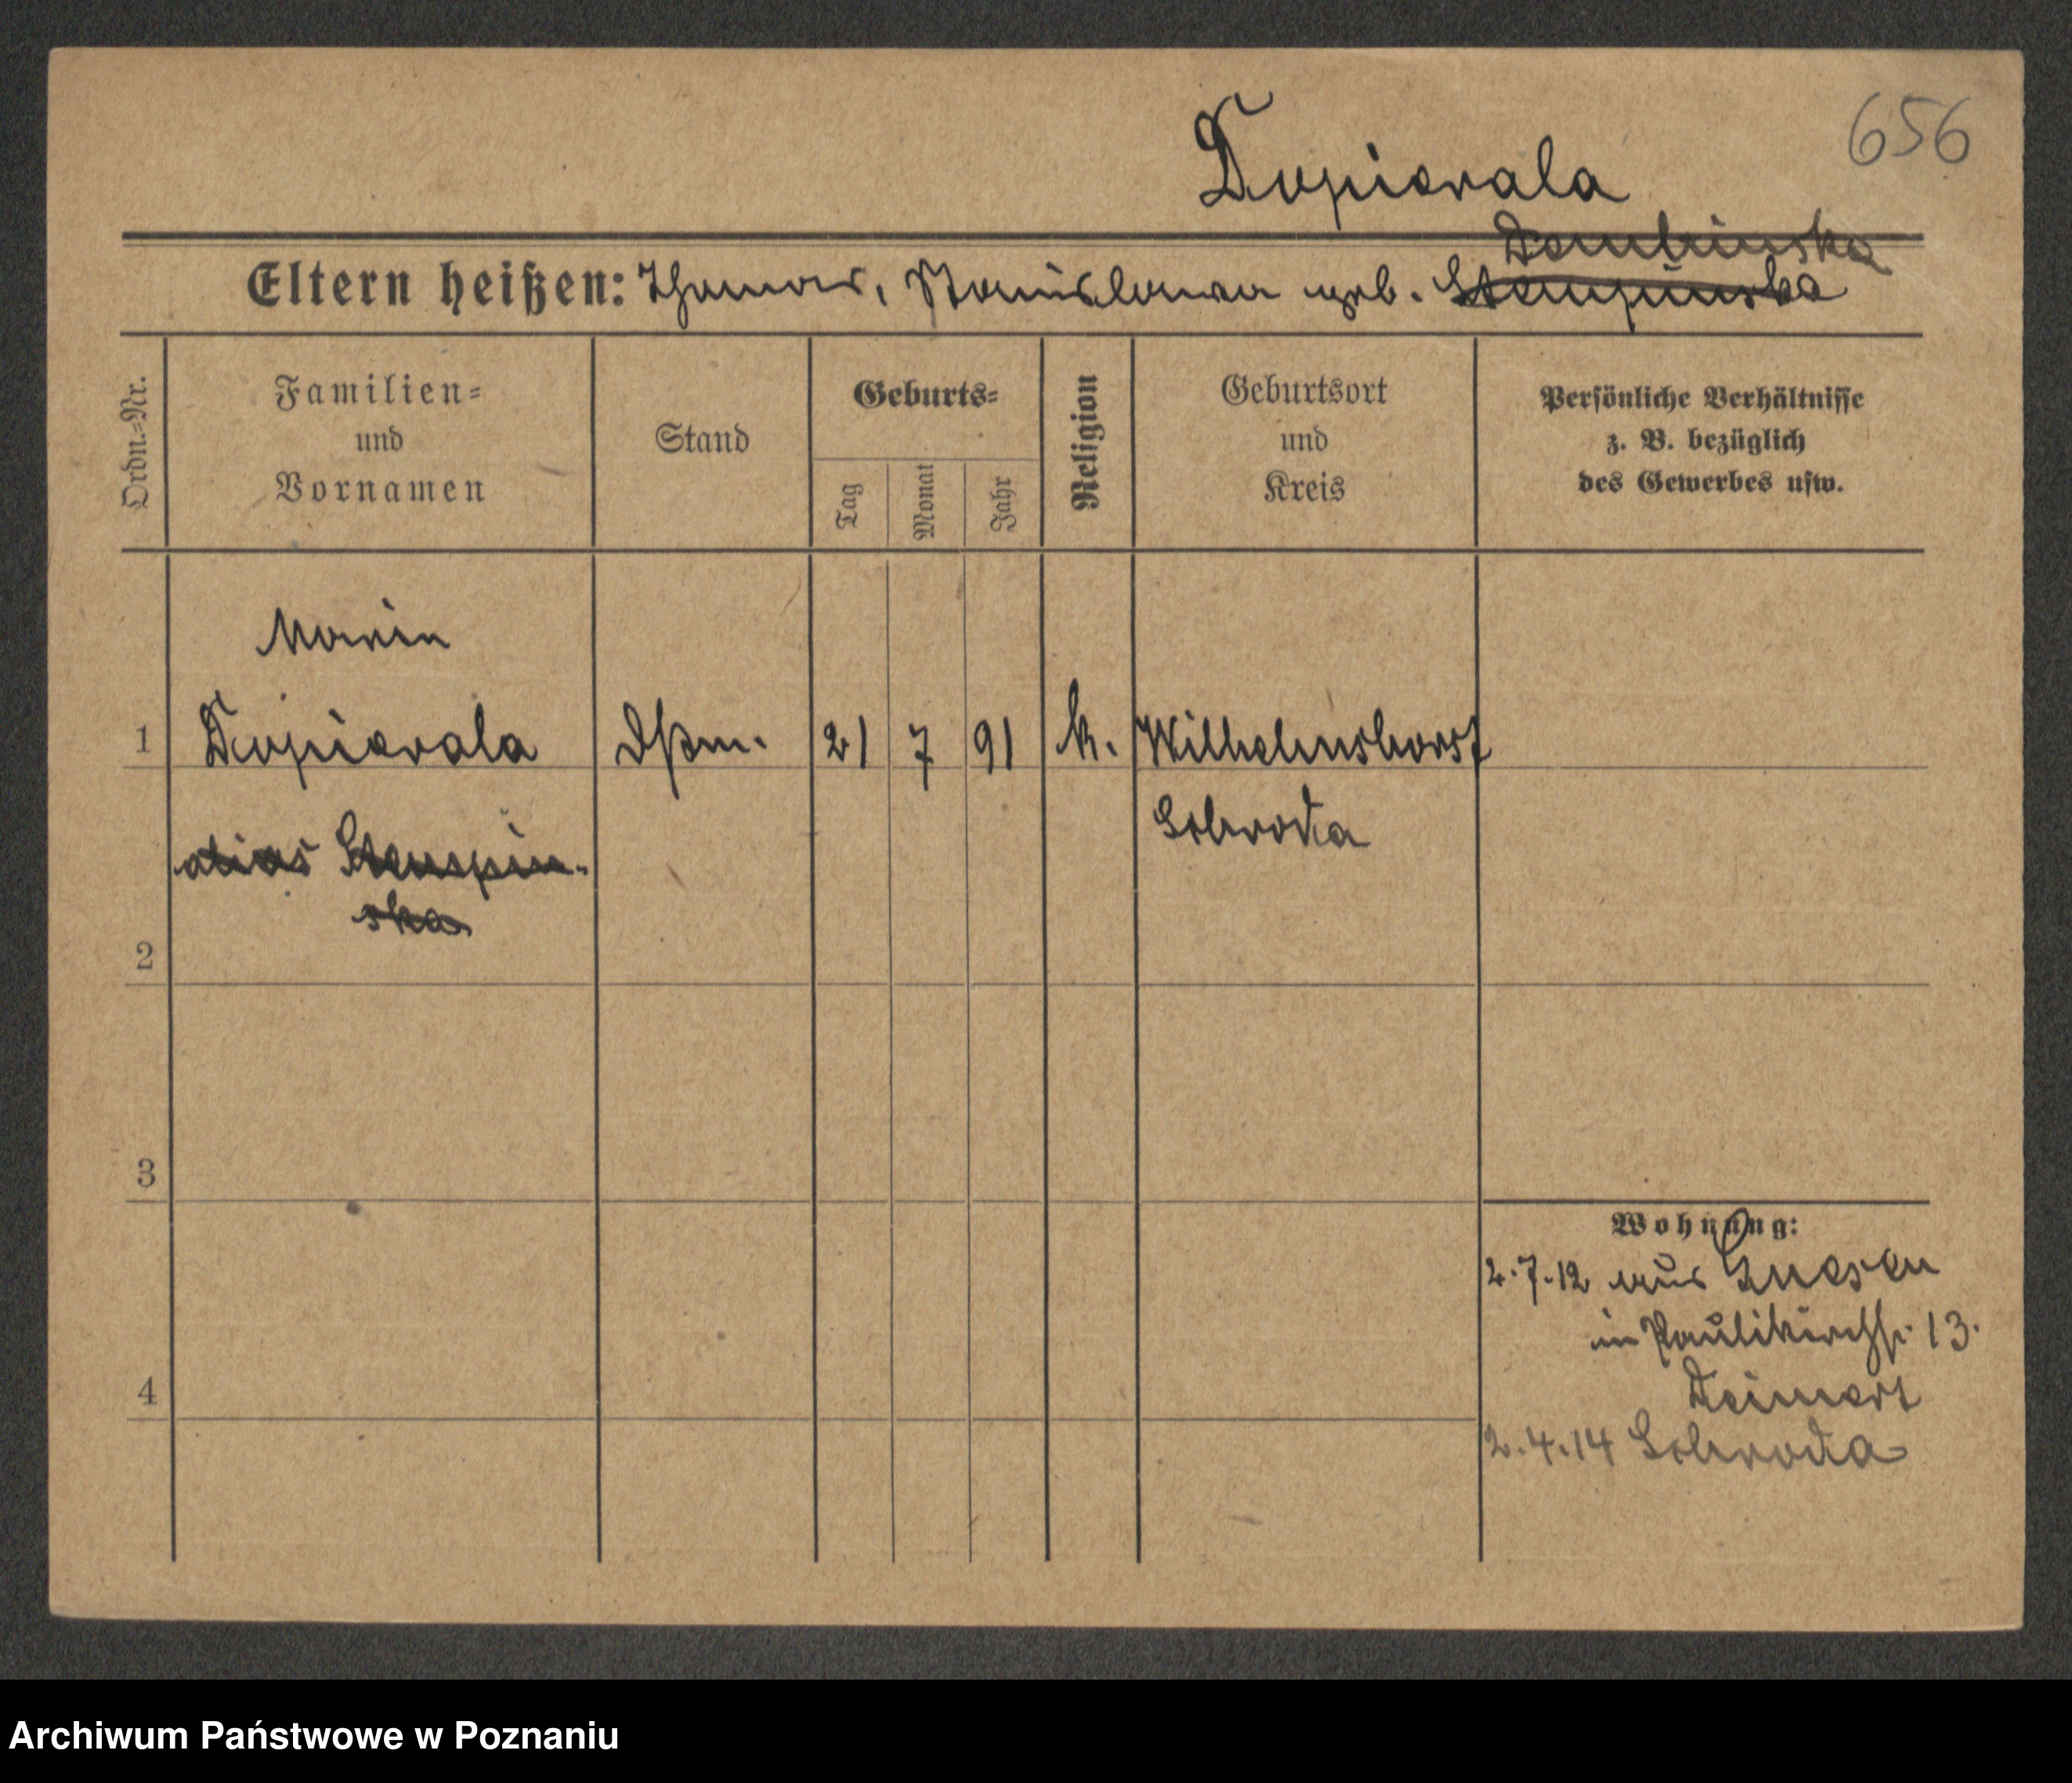 656
Dopierala
Dembinska
Eltern heißen: Thomas, Stanislawa geb. Stempinska
Ordn.=Nr.
Familien=
und
Vornamen
Stand
Geburts=
Tag
Monat
Jahr
Religion
Geburtsort
und
Kreis
Persönliche Verhältnisse
z. B. bezüglich
des Gewerbes usw.
Marie
1 Dopierala 21 7 91 k. Wilhelmshorst
Schroda
alias Stempin-
ska
2
3
4
Wohnung:
2.7.12 aus Gnesen
in Paulikirchst. 13.
Deimert
2.4.14 Schroda
Archiwum Państwowe w Poznaniu